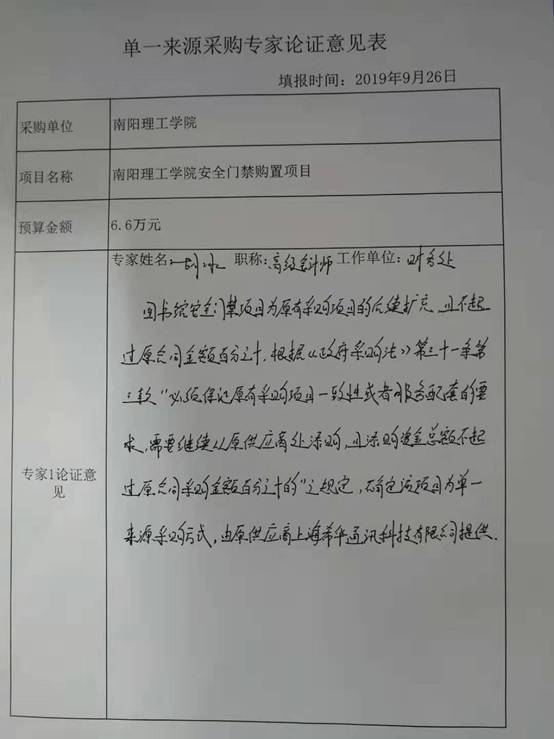 单一来源采购专家论证意见表
填报时间：2019年9月26日
采购单位 南阳理工学院
项目名称 南阳理工学院安全门禁购置项目
预算金额 6.6万元
专家姓名： 职称：高级会计师 工作单位：财务处
图书馆安全门禁项目为原有采购项目的后续扩充，且不超
过原合同金额百分之十，根据《政府采购法》第三十一条第
三款“必须保证原有采购项目一致性或者服务配套的要
求，需要继续从原供应商处添购，且添购资金总额不超
过原合同采购金额百分之十的”之规定，确定该项目为单一
来源采购方式，由原供应商上海希华通讯科技有限公司提供.
专家1论证意
见